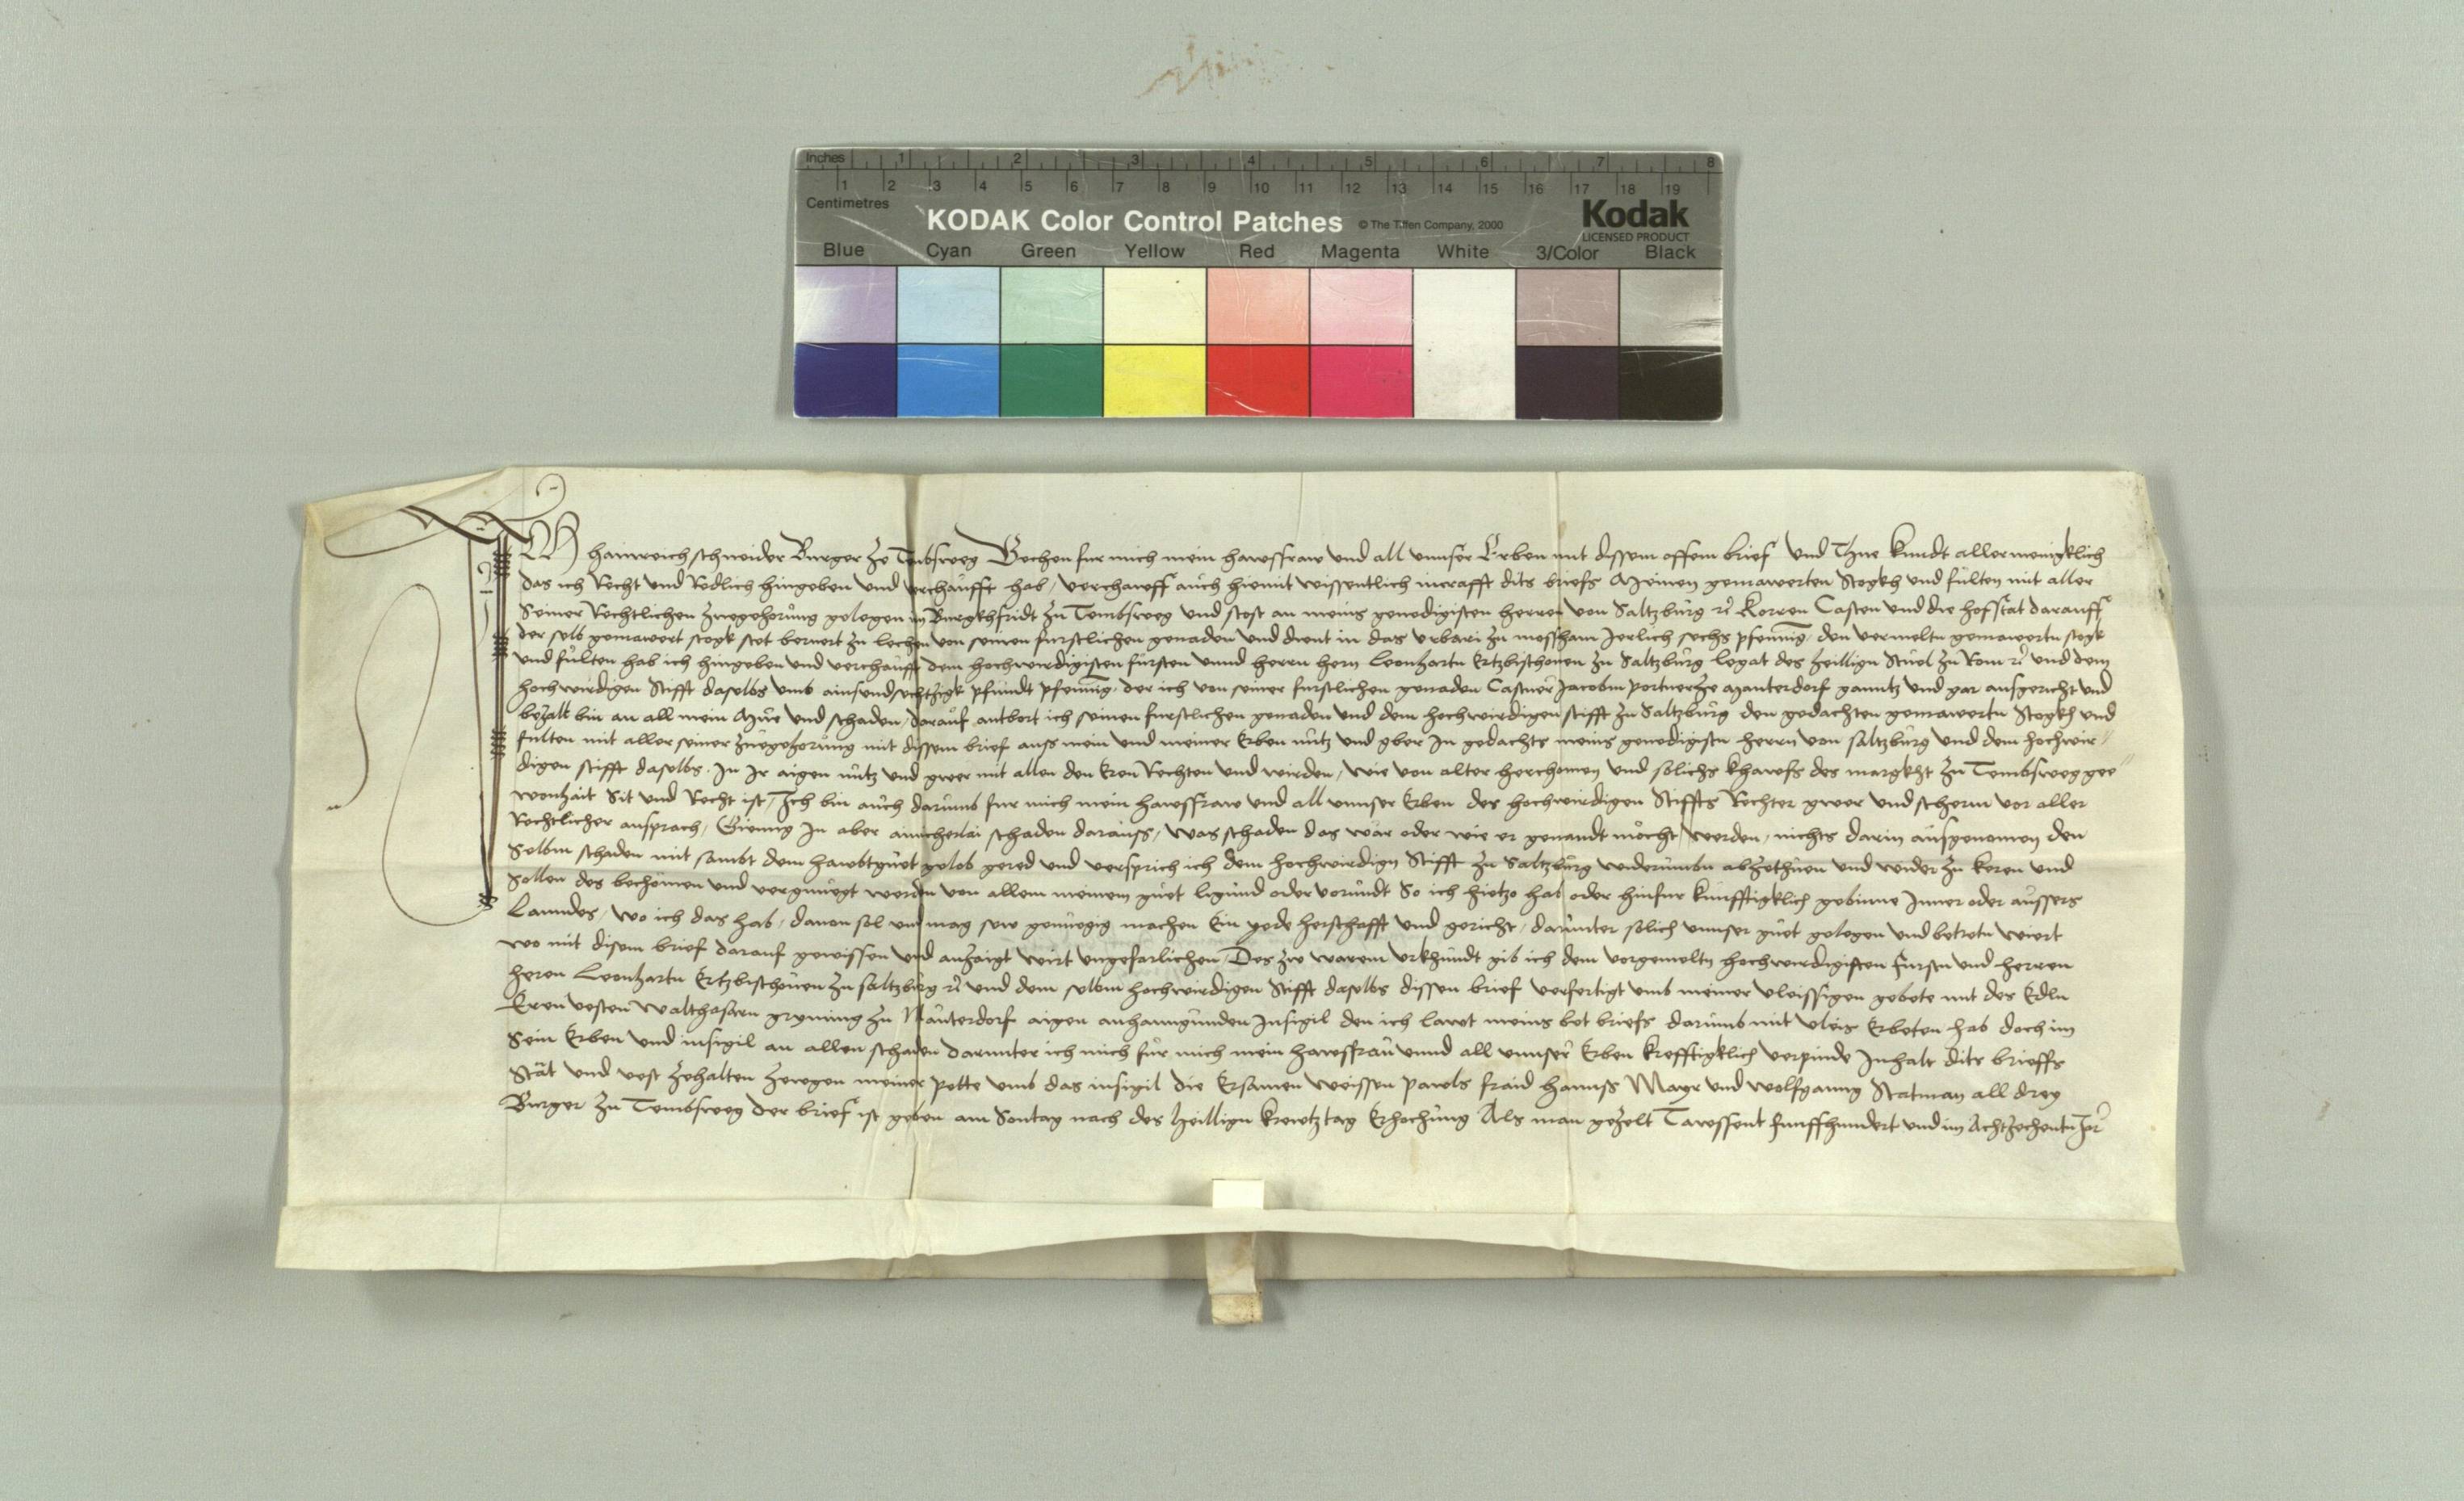 Inches 1 2 3 4 5 6 7 8
1 2 3 4 5 6 7 8 9 10 11 12 13 14 15 16 17 18 19
Centimetres
KODAK Color Control Patches © The Tiffen Company, 2000 Kodak
LICENSED PRODUCT
Blue Cyan Green Yellow Red Magenta White 3/Color Black
Ich hainreich schneider Burger ze Tembsweg Bechen fur mich mein hawsfraw und all unnser Erben mit dissem offem brief Und Thue kundt allermenigklich
das ich Recht und Redlich hingeben und verchaufft hab / verchauff auch hiemit wissentlich incrafft dits briefs Meinen gemawerten Stogkh und fulten mit aller
Seiner Rechtlichen zwegehorung gelegen im Burgkhfridt zu Tembsweg Und stost an meins genedigisten herren von Saltzburg Korren Casten und die hofstat darauff
der selb gemawert stogk stet beruert zu lechen von seinen furstlichen genaden und dient in das urbari zu mossham Jerlich sechs pfenning, den vermeltn gemawertn stogk
und fulten hab ich hingeben und verchaufft dem hochwirdigisten fursten unnd herrn hern Leonhartn Ertzbischoven zu Saltzburg legat des heillign Stuel zu Rom und dem
hochwirdigen Stifft daselbs umb pfundt pfenning, der ich von seiner furstlichen genaden Castner Jacobm portner ze Mauterdorf ganntz und gar ausgericht und
bezalt bin an all mein Mue und schaden / darauf antbort ich seinen furstlichen genaden und dem hochwirdigen stifft zu Saltzburg den gedachten gemawertn Stogkh und
fulten mit aller seiner zuegehorung mit dissem brief auss mein und meiner Erben nutz und gber In gedachts meins genedigistn herrn von saltzburg und dem hochwir-
digen stifft daselbs. In Ir aigen nutz und gwer mit allen den Eren Rechten und wirden / wie von alter herchomen und solichs khawfs des margkht zu Tembsweg gee-
wonhait Sit und Recht ist / Ich bin auch darumb fur mich mein hawsfraw und all unnser Erben des hochwirdigen Stiffts Rechter gwer und scherm vor aller
Rechtlicher ansprach / Gienng In aber ainicherlai schaden darauss / Was schaden das wär oder wie er genandt mocht werden / nichts darin ausgenomen den
Selbm schaden mit sambt dem hawbtguet gelob gered und versprich ich dem hochwirdign Stifft zu Saltzburg widerumbn abzethuen und wider zu keren und
Sollen des bechomen und vergnuegt werden von allem meinem guet ligund oder varundt So ich hietzo hab oder hinfur kunfftigklich gebinne Inner oder aussers
Lanndes / wo ich das hab / davon sol und mag sew genuegig machen Ein yede herschafft und gericht / darunter solich unnser guet gelegen und betretn wiert
wo mit disem brief darauf geweissen und anzaigt wirt ungefarlichen / Des zw warem urkhundt gib ich dem vorgemeltn hochwirdigisten fursten und herren
heren Leonhartn Ertzbischoven zu saltzburg und dem selbm hochwirdigen Stifft daselbs dissen brief verfertigt umb meiner vleissigen gebete mit des Edln
Eren vesten Walthasarn gryming zu Mauterdorf aigen anhanngunden Insigil den ich lawt meins bet briefs darumb mit vleis Erbeten hab doch im
Sein Erben und insigil an allen schaden darunter ich mich fur mich mein hawsfrau unnd all unnser Erben krefftigklich verpinde Inhalt dits brieffs
Stät und vest zehalten zewgen meiner pette umb das insigil die Ersamen weissen pawls fraid hanns Mayr und wolfganng Statman all drey
Burger zu Tembsweg der brief ist geben am Sontag nach des heillign krewtz tag Erhochung Als man gezelt Tawssent funffhundert und im Achtzechentn Jar